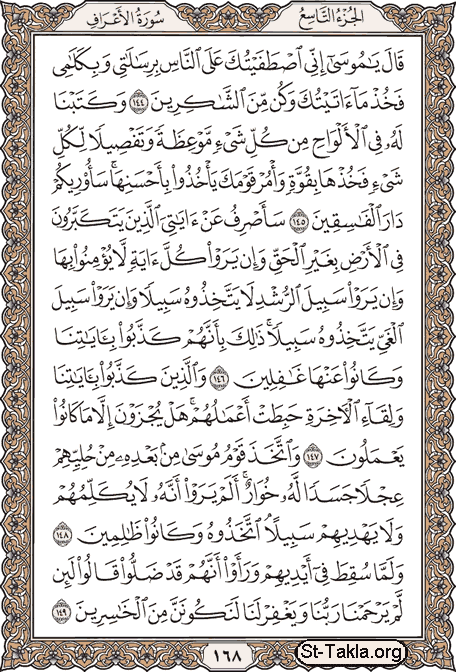 الجزء التاسع
سورة الأعراف
قَالَ يَٰمُوسَىٰٓ إِنِّي ٱصْطَفَيْتُكَ عَلَى ٱلنَّاسِ بِرِسَٰلَٰتِي وَبِكَلَٰمِي
فَخُذْ مَآ ءَاتَيْتُكَ وَكُن مِّنَ ٱلشَّٰكِرِينَ ١٤٤ وَكَتَبْنَا
لَهُۥ فِي ٱلْأَلْوَاحِ مِن كُلِّ شَيْءٍ مَّوْعِظَةً وَتَفْصِيلًا لِّكُلِّ
شَيْءٍ فَخُذْهَا بِقُوَّةٍ وَأْمُرْ قَوْمَكَ يَأْخُذُواْ بِأَحْسَنِهَا ۚ سَأُوْرِيكُمْ
دَارَ ٱلْفَٰسِقِينَ ١٤٥ سَأَصْرِفُ عَنْ ءَايَٰتِيَ ٱلَّذِينَ يَتَكَبَّرُونَ
فِي ٱلْأَرْضِ بِغَيْرِ ٱلْحَقِّ وَإِن يَرَوْاْ كُلَّ ءَايَةٍ لَّا يُؤْمِنُواْ بِهَا
وَإِن يَرَوْاْ سَبِيلَ ٱلرُّشْدِ لَا يَتَّخِذُوهُ سَبِيلًا وَإِن يَرَوْاْ سَبِيلَ
ٱلْغَيِّ يَتَّخِذُوهُ سَبِيلًا ۚ ذَٰلِكَ بِأَنَّهُمْ كَذَّبُواْ بِـَٔايَٰتِنَا
وَكَانُواْ عَنْهَا غَٰفِلِينَ ١٤٦ وَٱلَّذِينَ كَذَّبُواْ بِـَٔايَٰتِنَا
وَلِقَآءِ ٱلْأٓخِرَةِ حَبِطَتْ أَعْمَٰلُهُمْ ۚ هَلْ يُجْزَوْنَ إِلَّا مَا كَانُواْ
يَعْمَلُونَ ١٤٧ وَٱتَّخَذَ قَوْمُ مُوسَىٰ مِنۢ بَعْدِهِۦ مِنْ حُلِيِّهِمْ
عِجْلًا جَسَدًا لَّهُۥ خُوَارٌ ۚ أَلَمْ يَرَوْاْ أَنَّهُۥ لَا يُكَلِّمُهُمْ
وَلَا يَهْدِيهِمْ سَبِيلًا ۘ ٱتَّخَذُوهُ وَكَانُواْ ظَٰلِمِينَ ١٤٨
وَلَمَّا سُقِطَ فِيٓ أَيْدِيهِمْ وَرَأَوْاْ أَنَّهُمْ قَدْ ضَلُّواْ قَالُواْ لَئِن
لَّمْ يَرْحَمْنَا رَبُّنَا وَيَغْفِرْ لَنَا لَنَكُونَنَّ مِنَ ٱلْخَٰسِرِينَ ١٤٩
١٦٨
St-Takla.org